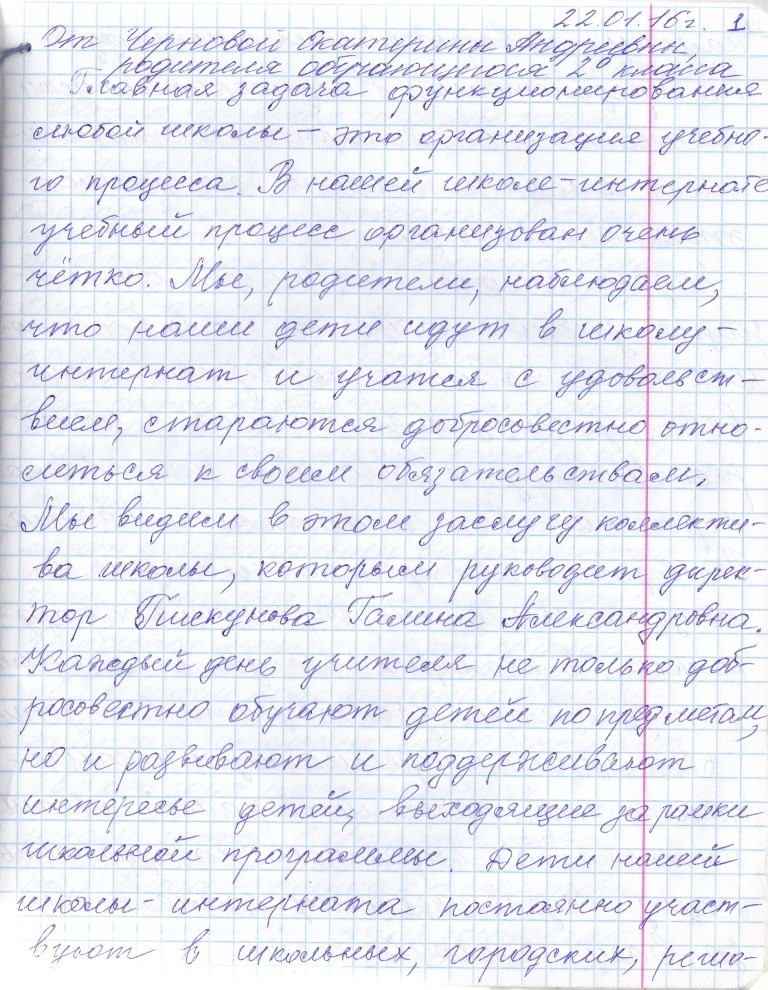 22.01.16г. 1
От Черновой Екатерины Андреевны,
родителя обучающегося 2 класса
Главная задача функционирования
любой школы – это организация учебно-
го процесса. В нашей школе-интернате
учебный процесс организован очень
чётко. Мы, родители, наблюдаем,
что наши дети идут в школу-
интернат и учатся с удовольст-
вием, стараются добросовестно отно-
ситься к своим обязательствам.
Мы видим в этом заслугу коллекти-
ва школы, которым руководит дирек-
тор Пискунова Галина Александровна.
Каждый день учителя не только доб-
росовестно обучают детей по предметам,
но и развивают и поддерживают
интересы детей, выходящие за рамки
школьной программы. Дети нашей
школы-интерната постоянно участ-
вуют в школьных, городских, регио-